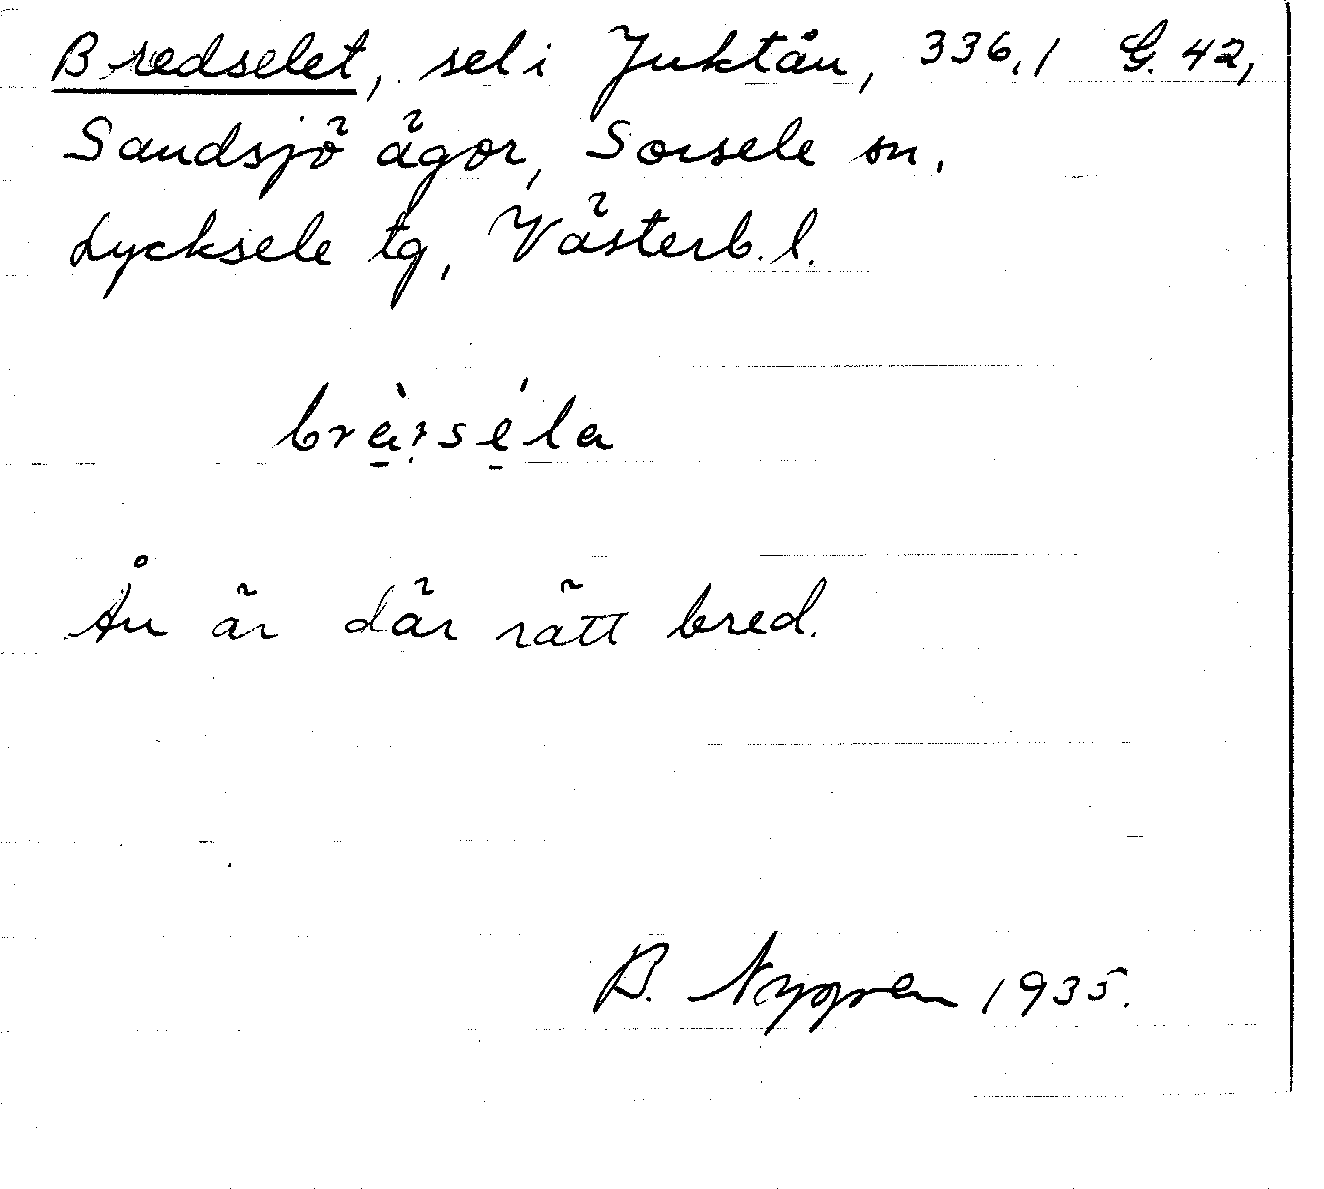 Bredselet, sel i Juktån, 336,1 G. 42,
Sandsjö ägor, Sorsele sn.
Lycksele tg, Västerb. l.
Ån är där rätt bred.
B. Nygren 1935.